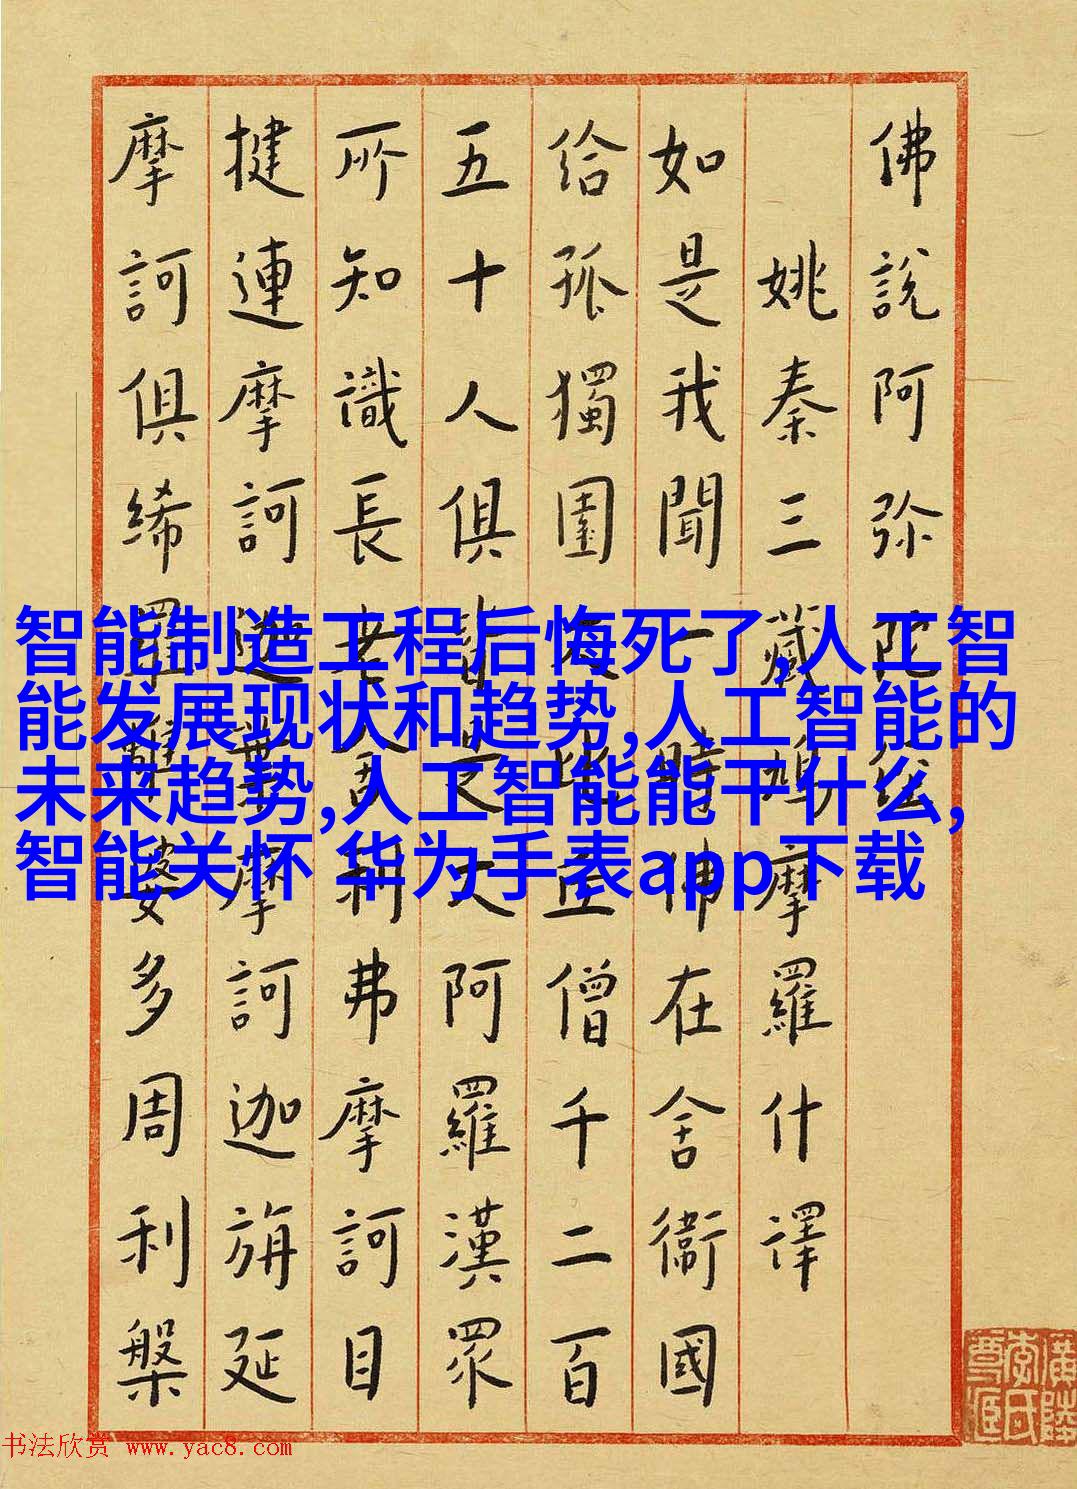 佛說阿弥陀経
姚秦三藏鳩摩羅什譯
如是我聞一時佛在舍衞國
给孤獨園大比丘僧千二百
五十人俱皆是大阿羅漢眾
所知識長老舍利弗摩訶目
揵連摩訶迦葉摩訶迦旃延
摩訶俱絺羅離婆多周利槃
智能制造工程后悔死了,人工智
能发展现状和趋势,人工智能的
未来趋势,人工智能能干什么,
智能关怀 华为手表app下载
书法欣赏 www.yac8.com